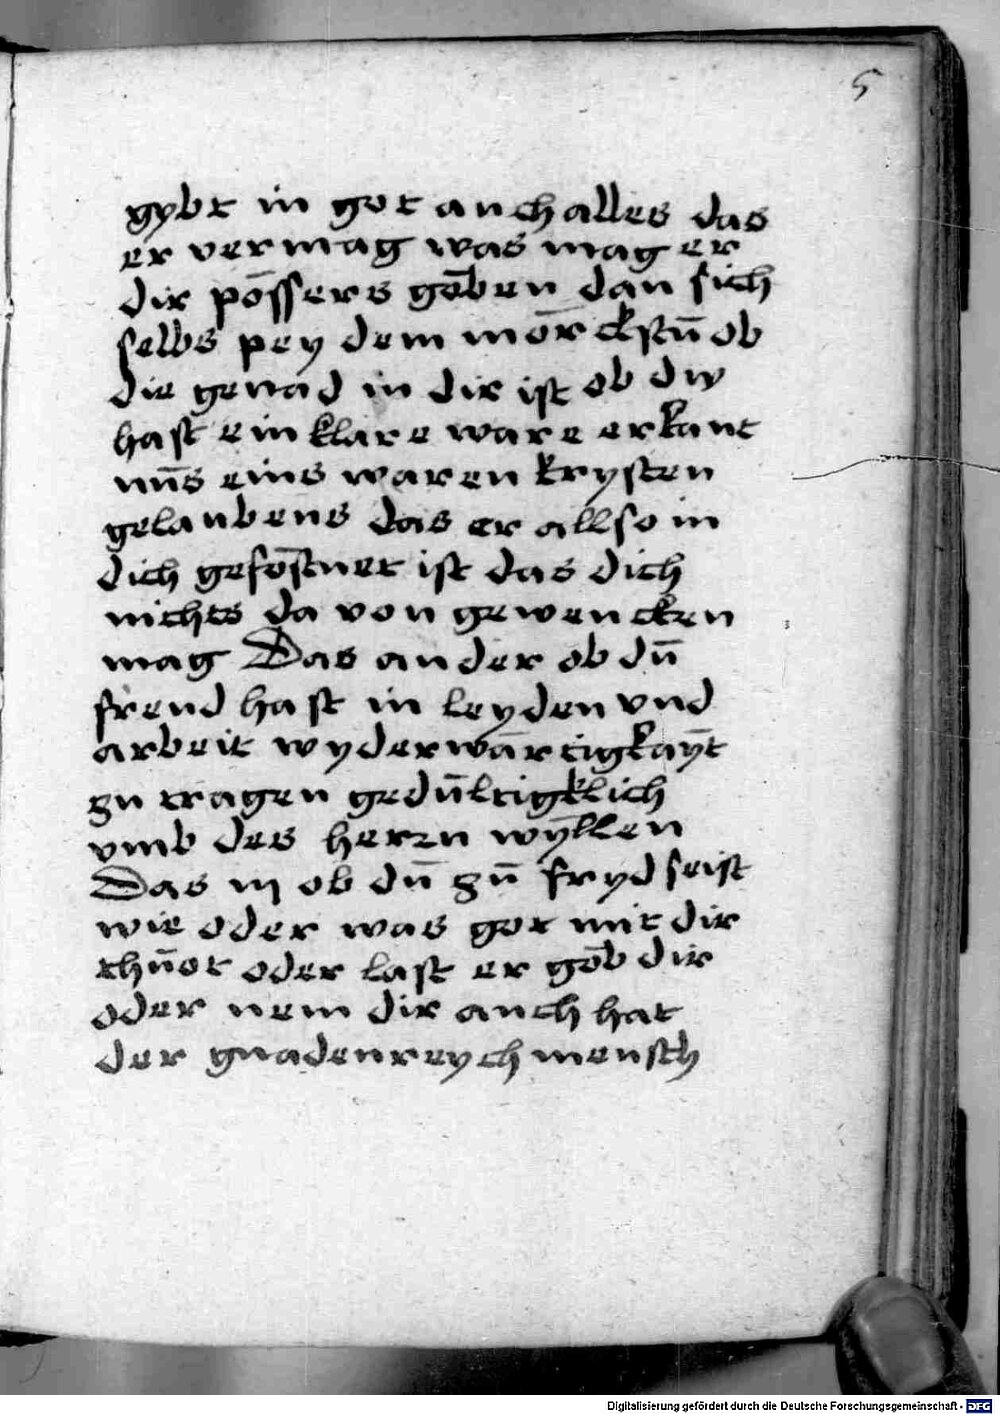 5
gybt in got auch alles das
er vermag was mag er
dir pössers göben dan sich
selbs pey dem mörckstu ob
die genad in dir ist ob dw
hast ein klare ware erkant
nus eins waren krysten
gelaubens das er allso in
dich geföstnet ist das dich
nichts da von gewencken
mag Das ander ob dū
freud hast in leyden vnd
arbeit wyderwärtigkaÿt
zu tragen gedūltigklich
vmb des herzn wÿllen
Das iij ob dū zū fryd seist
wie oder was got mit dir
thūot oder last er göb dir
oder nem dir auch hat
der gnadenreych mensch
Digitalisierung gefördert durch die Deutsche Forschungsgemeinschaft - DFG